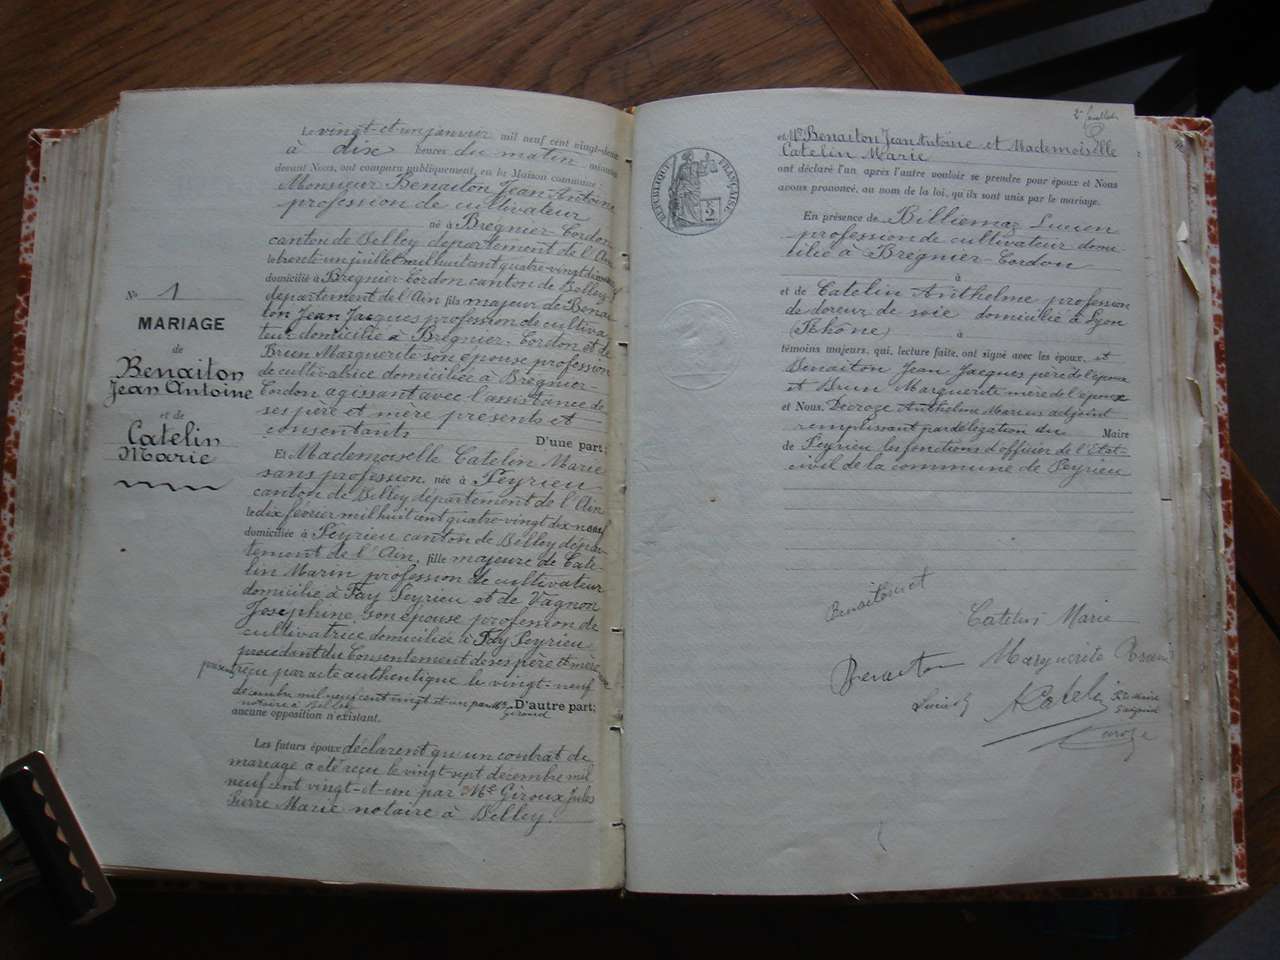 Nº 1
MARIAGE
de
Benaiton
Jean Antoine
et de
Catelin
Marie
Le vingt-et-un janvier mil neuf cent vingt-deux
à dix heures du matin
devant Nous, ont comparu publiquement, en la Maison commune:
Monsieur Benaiton Jean Antoine
profession de cultivateur
né à Brégnier-Cordon
canton de Belley département de l'Ain
le trente un juillet mil huit cent quatre-vingt
domicilié à Brégnier-Cordon canton de Belley
département de l'Ain fils majeur de Benai
ton Jean Jacques profession de cultiva
teur domicilié à Brégnier-Cordon et de
Brun Marguerite son épouse profession
de cultivatrice domiciliée à Brégnier-
Cordon agissant avec l'assistance de
ses père et mère présents et
consentants D'une part;
Et Mademoiselle Catelin Marie
sans profession, née à Peyrieu
canton de Belley département de l'Ain
le dix février mil huit cent quatre-vingt dix neuf
domiciliée à Peyrieu canton de Belley dépar-
tement de l'Ain, fille majeure de Cate-
lin Marin profession de cultivateur
domicilié à Fay Peyrieu et de Vagnon
Josephine son épouse profession de
cultivatrice domiciliée à Fay Peyrieu
procédant du consentement de ses père et mère
reçu par acte authentique le vingt-neuf
décembre mil neuf cent vingt et un par Me
notaire à Belley D'autre part;
aucune opposition n'existant.
Les futurs époux déclarent qu'un contrat de
mariage a été reçu le vingt-sept décembre mil
neuf cent vingt-et-un par Me Giroux Jules
Pierre Marie notaire à Belley.
2e feuillet
RÉPUBLIQUE FRANÇAISE
2
et Mr Benaiton Jean Antoine et Mademoiselle
Catelin Marie
ont déclaré l'un après l'autre vouloir se prendre pour époux et Nous
avons prononcé, au nom de la loi, qu'ils sont unis par le mariage.
En présence de Billiemaz Lucien
profession de cultivateur domi-
cilié à Brégnier-Cordon
à
et de Catelin Anthelme profession
de doreur de soie domicilié à Lyon
(Rhône) à
témoins majeurs, qui, lecture faite, ont signé avec les époux, et
Benaiton Jean Jacques père de l'époux
et Brun Marguerite mère de l'époux
et Nous, Deroze Anthelme Marius adjoint
remplissant par délégation du Maire
de Peyrieu les fonctions d'officier de l'Etat-
civil de la commune de Peyrieu
Benaiton
Catelin Marie
Benaiton
Marguerite Brun
A Catelin
Deroze